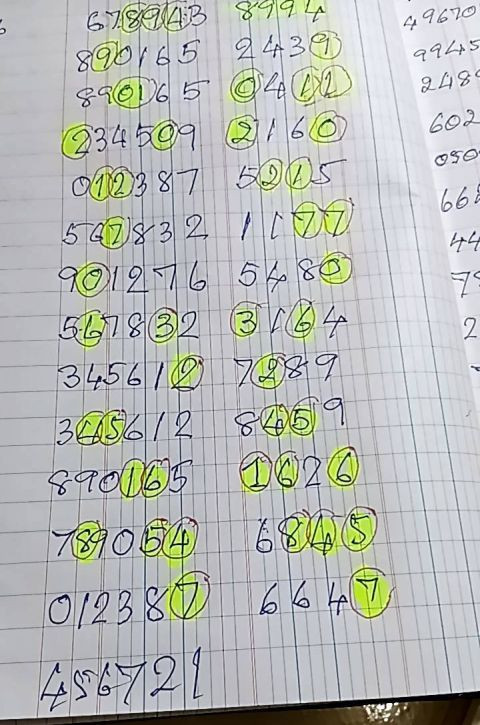 678943 8994 49670
890165 2439 9945
890165 0412 2489
234509 2160 602
012387 5215 050
567832 1177 668
901276 5480 44
567832 3164
345612 7289 2
345612 8459
890165 1626
789054 6845
012387 6647
456721